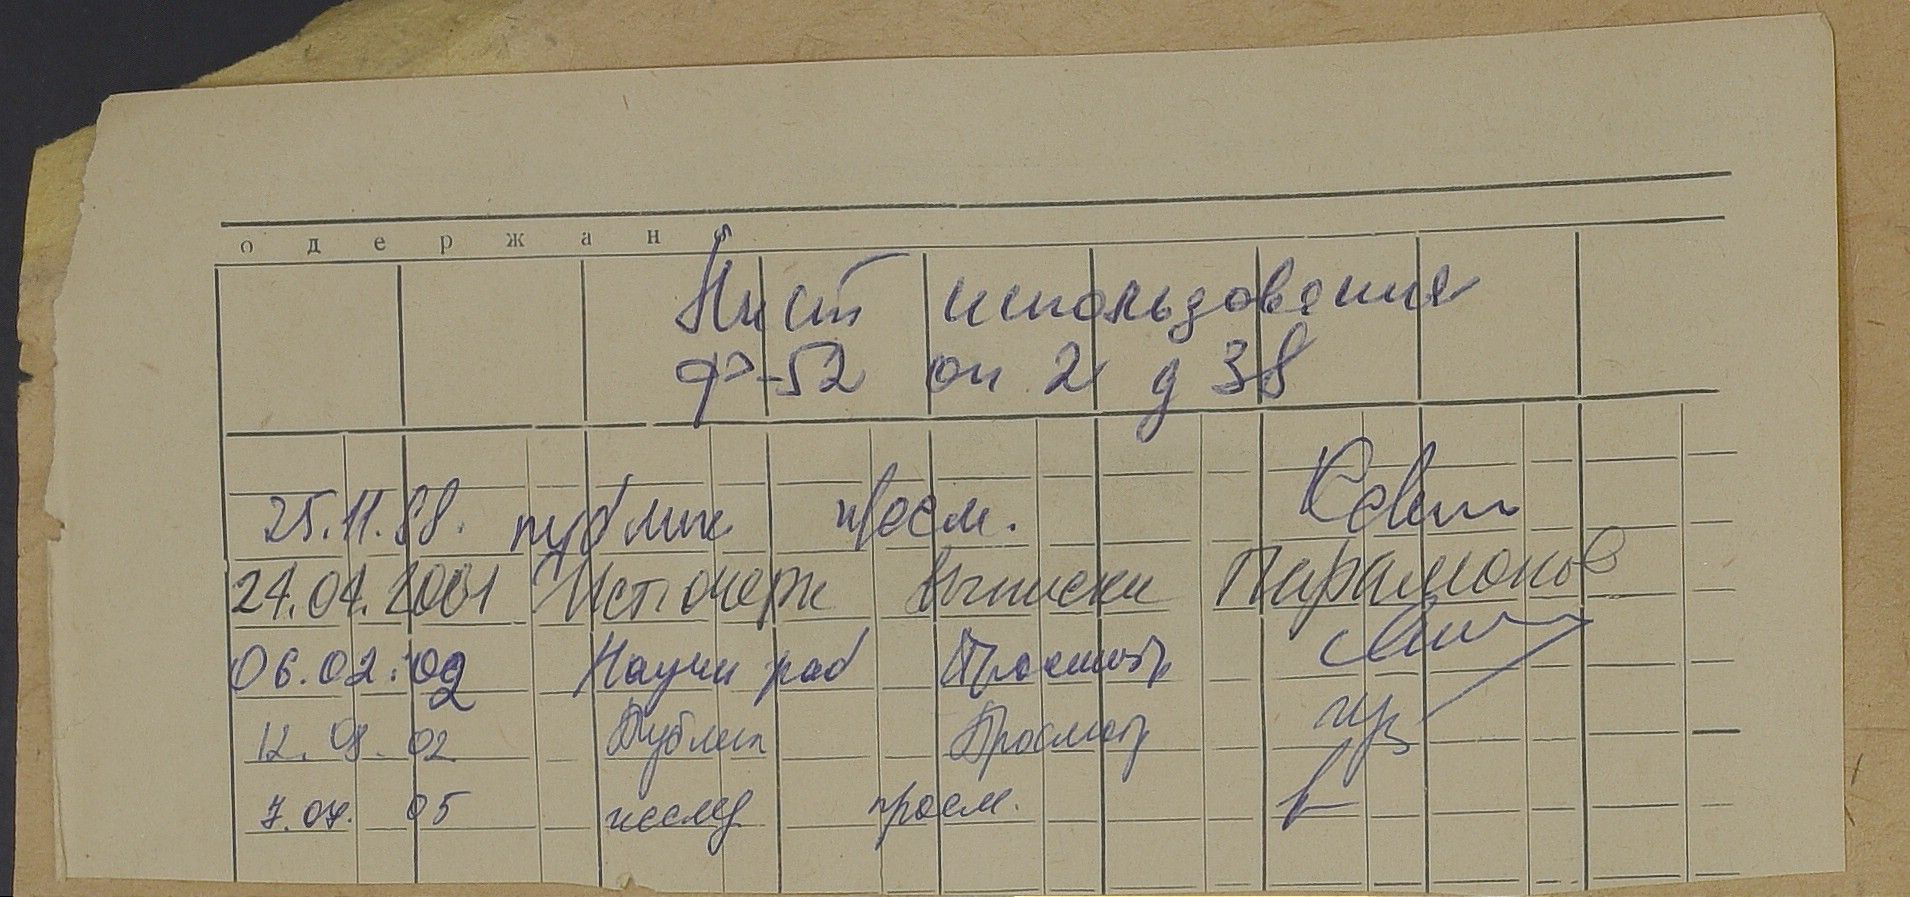 одержан
Лист использования
ф-52 оп 2 д 38
25.11.88. публик просм.
24.04.2001 Ист. очерк Выписки Парамонов
06.02.02 Научн раб Просмотр
12.08.02 Публик Просмотр
7.04. 05 исслед просм.